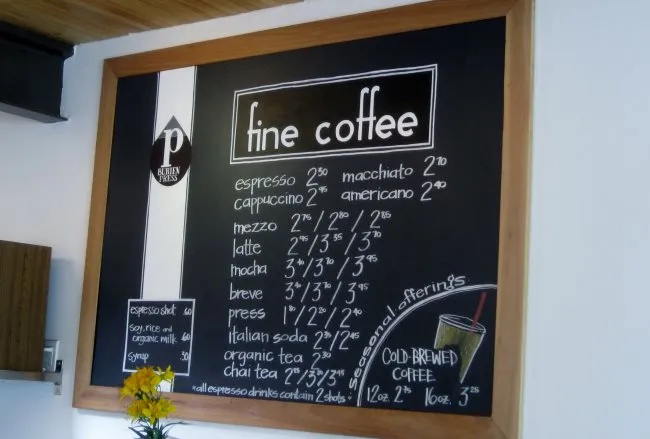 P
BURIEN
PRESS
fine coffee
espresso 2.50 macchiato 2.70
cappuccino 2.95 americano 2.40
mezzo 2.75/2.80/2.85
latte 2.95/3.35/3.70
mocha 3.40/3.70/3.95
breve 3.40/3.70/3.95
press 1.80/2.20/2.40
italian soda 2.35/2.45
organic tea 2.30
chai tea 2.85/3.30/3.45
*all espresso drinks contain 2 shots*
espresso shot .60
soy, rice and
organic milk .60
syrup .50
seasonal offerings
COLD-BREWED
COFFEE
12oz. 2.75 16oz. 3.25